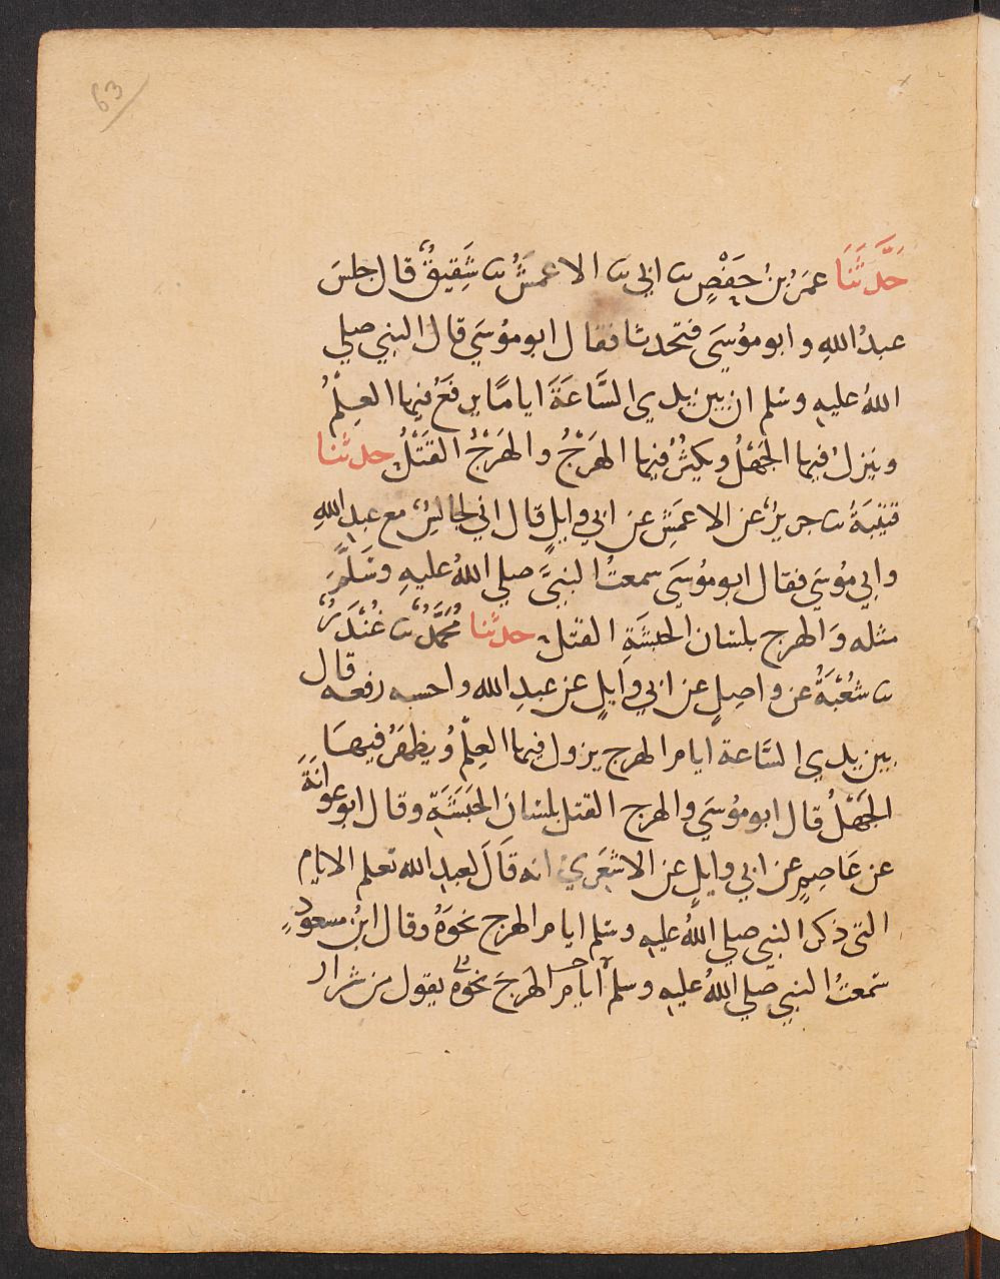 63
حَدَّثَنَا عمَرُ بنُ حَفْصٍ ثنا ابي ثنا الاعمَشُ ثنا شَقِيقٌ قال جلسَ
عبدُ اللهِ وابو موُسَي فتحدثا فقال ابو موُسَي قال النبي صلي
اللهُ عليهِ وسَلم ان بين يدي السَّاعَةَ اياماً يرفعُ فيها العِلْمُ
وينزلُ فيها الجَهْلُ ويكثُرُ فيها الهَرْجُ والهَرْجُ القَتْلُ حدثنا
قتيبَةُ ثنا جريرٌ عن الاعمَشِ عن ابي وايلٍ قال اني لجالسٌ مع عبدِ اللهِ
وابي موُسَي فقال ابو موُسَي سمعتُ النبيَّ صلي اللهُ عليهِ وسَلَّمَ
مثله وَالهرج بلسَان الحبشَةِ القتل حدثنا مُحَمَّدٌ ثنا غُنْدَرٌ
ثنا شعْبَةُ عن واصِلٍ عن ابي وايلٍ عن عبدِ الله واحسبه رفعه قال
بين يدي السَّاعة ايام الهرج يزول فيها العِلْمُ ويظهَرُ فيهَا
الجَهْلُ قال ابو موُسَي والهرج القتل بلسَان الحَبَشَةِ وقال ابو عوانَةَ
عن عَاصِمٍ عن ابي وايلٍ عن الاشعَرِي انه قَالَ لعبدِ الله تعلم الايام
التي ذكر النبي صلي اللهُ عليهِ وسَلم ايام الهرج نحوَهُ وقال ابنُ مسعودٍ
سَمعتُ النبي صَلي اللهُ عليهِ وسلم ايام الهرجَ نحوهُ يقول من شرار